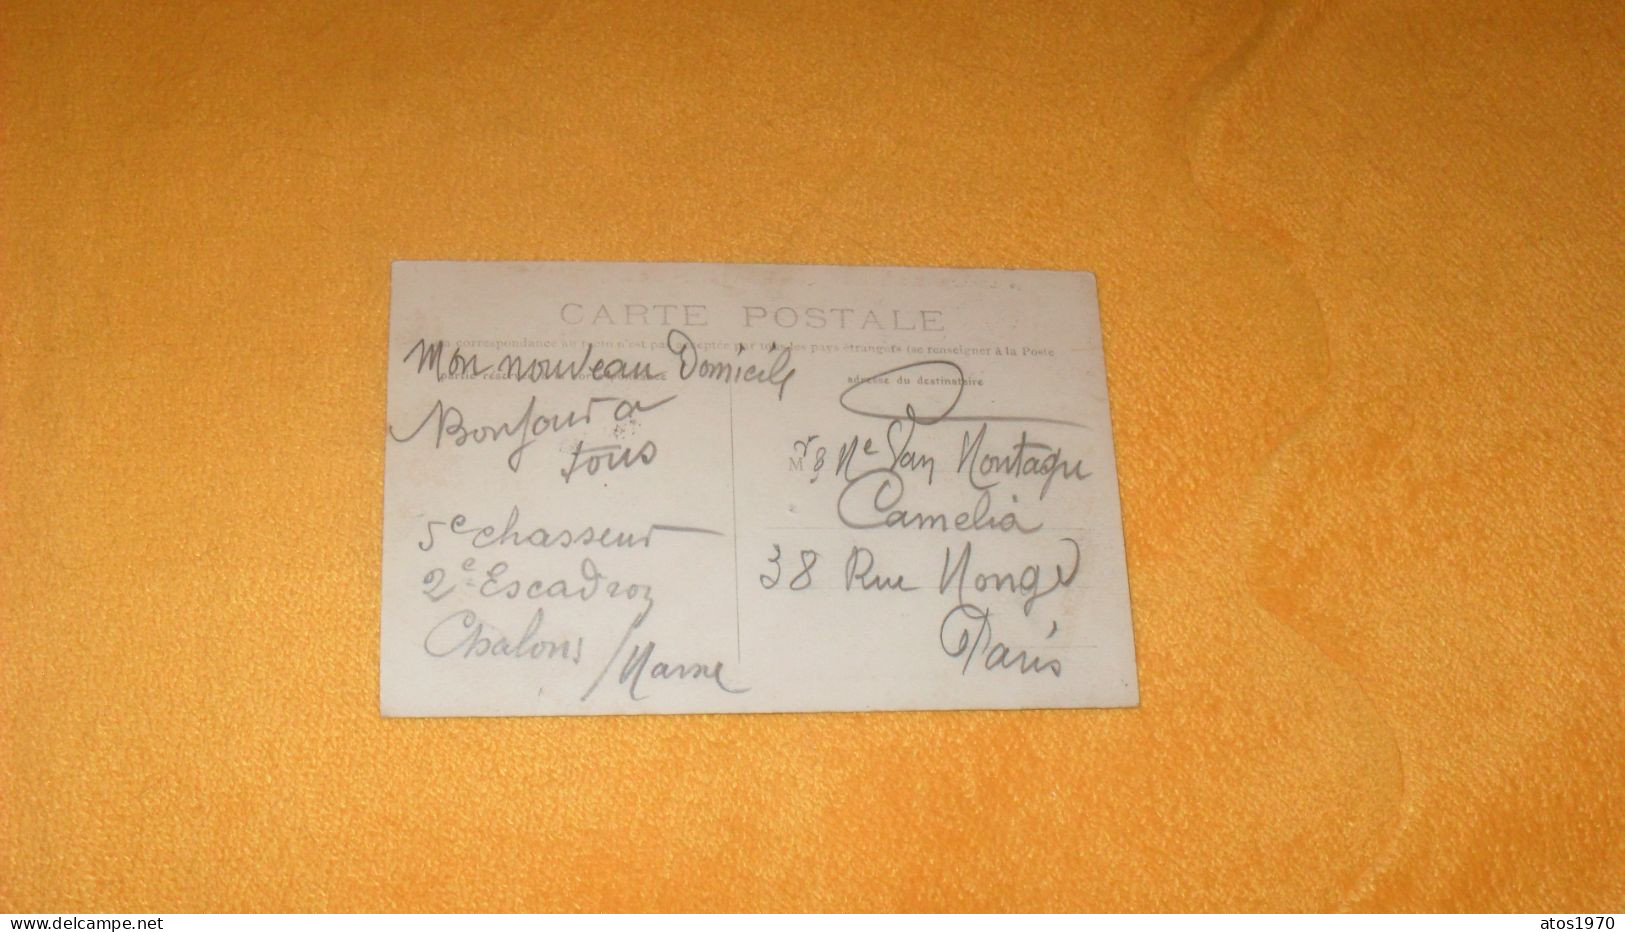 CARTE POSTALE
correspondance au recto n'est pas acceptée par tous les pays étrangers (se renseigner à la Poste
Mon nouveau Domicile
partie réservée à la correspondance
Bonjour a
tous
5e chasseur
2e Escadron
Chalons / Marne
adresse du destinataire
Mr & Me Van Montagu
Camelia
38 Rue Monge
Paris
delcampe.net
atos1970